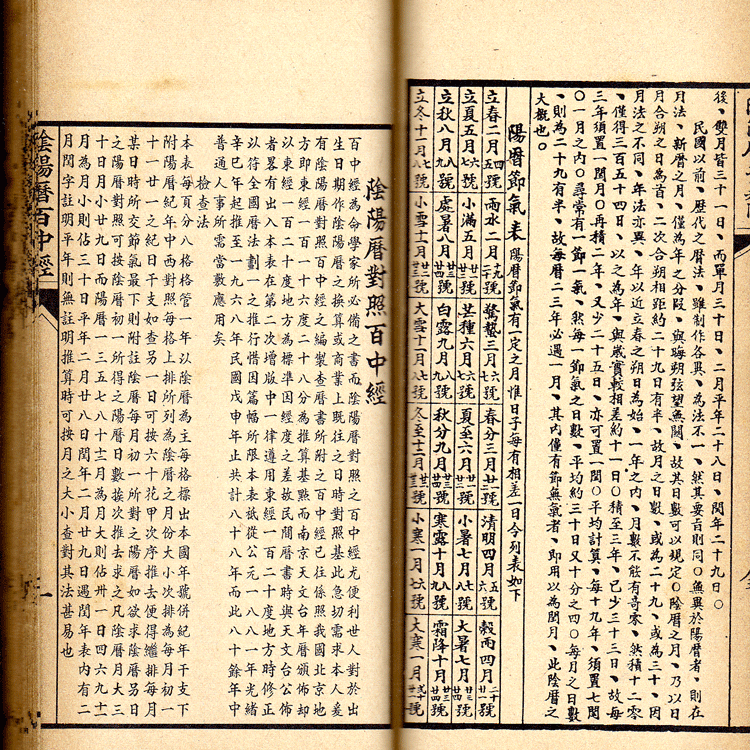 後、雙月皆三十一日、而單月三十日、二月平年二十八日、閏年二十九日○
民國以前、歷代之曆法、雖制作各異、為法不一、然其要旨則同○無異於陽曆者、則在
月法、新曆之月、僅為年之分段、與晦朔弦望無關、故其日數可以規定○陰曆之月、乃以日
月合朔之日為首、二次合朔相距約二十九日有半、故月之日數、或為二十九、或為三十、因
月法之不同、年法亦異、年以近立春之朔日為始、一年之內、月數不能有奇零、然積十二零
、僅得三百五十四日、以之為年、與歲實較相差約十一日○積至三年、已少三十三日、故每
三年須置一閏月○再積二年、又少二十五日、亦可置一閏○平均計算、每十九年、須置七閏
○一月之內○尋常有一節一氣、然每一節一氣之日數、平均約三十日又十分之四○每月之日數
、則為二十九有半、故每曆二三年必遇一月、其內僅有節無氣者、即用以為閏月、此陰曆之
大概也。
陽曆節氣表 陽曆節氣有一定之月惟日子每有相差一日今列表如下
立春二月四五號 雨水二月十九二十號 驚蟄三月六七號 春分三月廿一號 清明四月五六號 穀雨四月二十廿一號
立夏五月六七號 小滿五月廿一廿二號 芒種六月六七號 夏至六月廿一廿二號 小暑七月七八號 大暑七月廿三廿四號
立秋八月八九號 處暑八月廿三廿四號 白露九月八九號 秋分九月廿三廿四號 寒露十月八九號 霜降十月廿三廿四號
立冬十一月七八號 小雪十一月廿二廿三號 大雪十二月七八號 冬至十二月廿二廿三號 小寒一月六七號 大寒一月二十廿一號
陰陽曆對照百中經
百中經為命學家所必備之書而陰陽曆對照百中經尤便利世人對於出
生日期作陰陽曆之換算或商業上既往之日時對照基此急切需求本人爰
有陰陽曆對照百中經之編製查曆書所附之百中經已往係照我國北京地
方即東經一百一十六度二十八分為推算基點而南京天文台年曆頒佈却
以東經一百二十度地方為標準因經度之差故民間曆書時與天文台公佈
者畧有出入本表在第二次增版中一律遵用東經一百二十度地方時修正
以符全國曆法劃一之推行惜因篇幅所限本表祇從公元一八八一年光緒
辛巳年起推至一九六八年民國戊申年止共計八十八年而此八十餘年中
普通人事所需當數應用矣
檢查法
本表每頁分八格格管一年以陰曆為主每格標出本國年號併紀年干支下
附陽曆紀年中西對照每格上排所列為陰曆之月份大小次排為每月初一
十一廿一之紀日干支如查另一日可按六十花甲次序推去便得繼排每月
某日時所交節氣最下則附註陰曆每月初一所對之陽曆如欲求陰曆某日
之陽曆對照可按陰曆初一所得之陽曆日數挨次推去求之凡陰曆月大三
十日月小廿九日而陽曆一三五七八十十二月為月大則佔卅一日四六九十一
月為月小則佔三十日平年二月廿八日閏年二月廿九日遇閏年表內有二
月閏字註明平年則無註明推算時可按月之大小查對其法甚易也
陰陽曆百中經
一